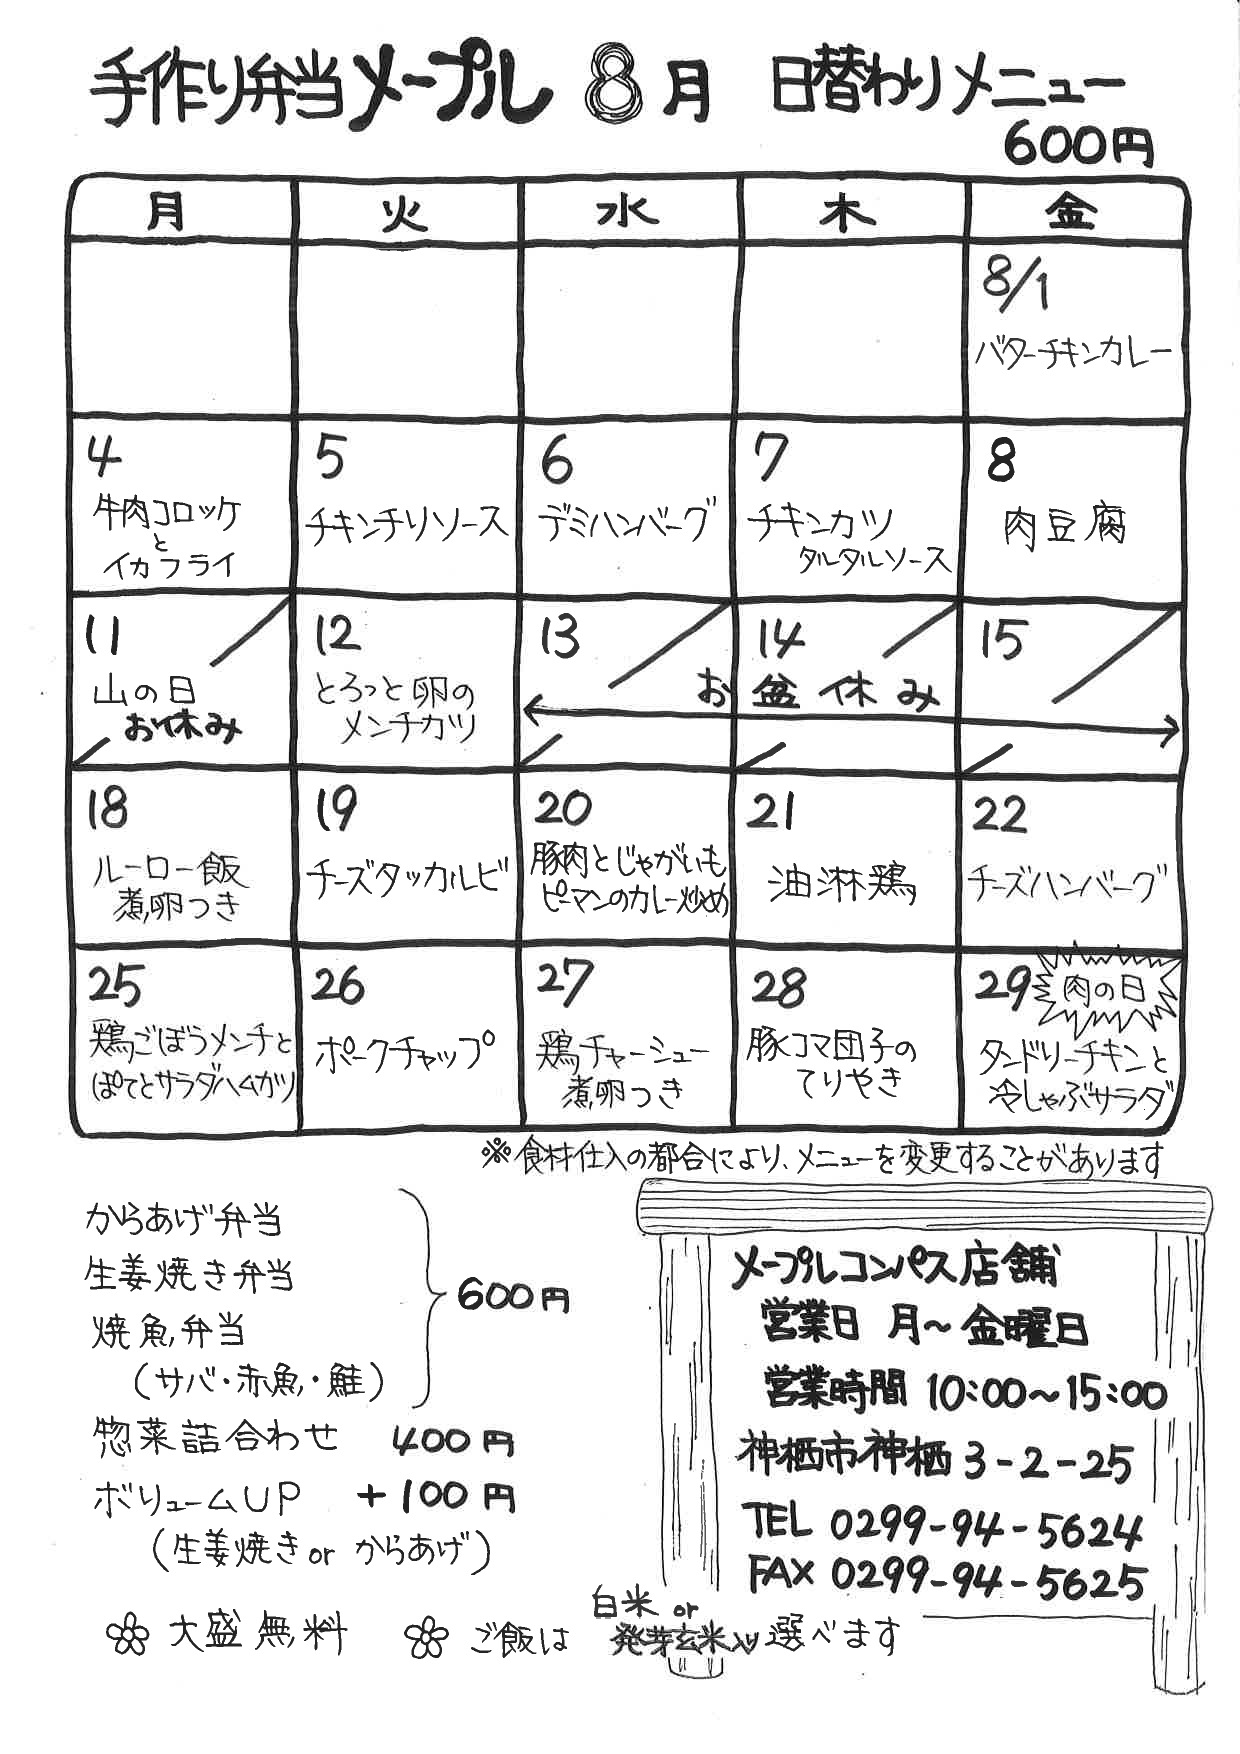 手作り弁当メープル 8月 日替わりメニュー
600円
月 火 水 木 金
8/1
バターチキンカレー
4
牛肉コロッケ
と
イカフライ
5
チキンチリソース
6
デミハンバーグ
7
チキンカツ
タルタルソース
8
肉豆腐
11
山の日
お休み
12
とろっと卵の
メンチカツ
13
14
15
お盆休み
18
ルーロー飯
煮卵つき
19
チーズタッカルビ
20
豚肉とじゃがいも
ピーマンのカレー炒め
21
油淋鶏
22
チーズハンバーグ
25
鶏ごぼうメンチと
ぽてとサラダハムカツ
26
ポークチャップ
27
鶏チャーシュー
煮卵つき
28
豚コマ団子の
てりやき
29 肉の日
タンドリーチキンと
冷しゃぶサラダ
※食材仕入の都合により、メニューを変更することがあります
からあげ弁当
生姜焼き弁当
焼魚弁当
(サバ・赤魚・鮭)
600円
惣菜詰合わせ 400円
ボリュームUP +100円
(生姜焼き or からあげ)
大盛無料
ご飯は 白米 or 発芽玄米入り 選べます
メープルコンパス店舗
営業日 月~金曜日
営業時間 10:00~15:00
神栖市神栖3-2-25
TEL 0299-94-5624
FAX 0299-94-5625